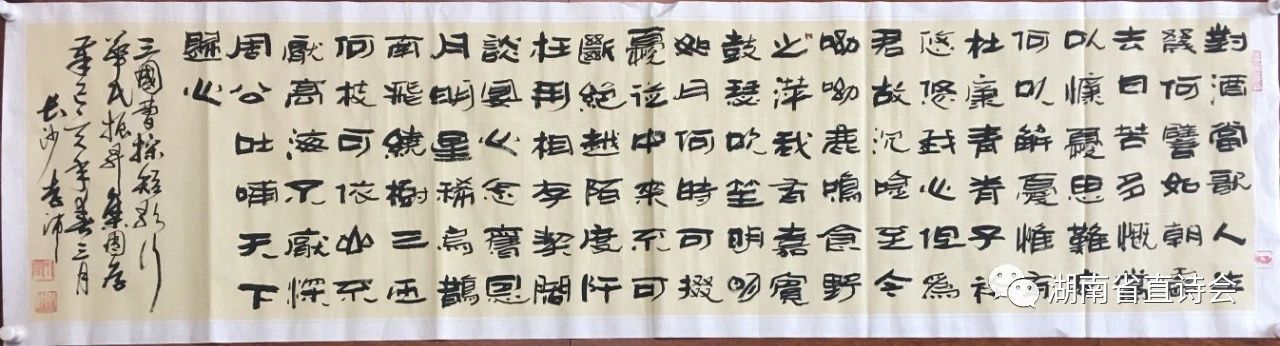 對酒當歌人生
幾何譬如朝露
去日苦多慨當
以慷憂思難忘
何以解憂惟有
杜康青青子衿
悠悠我心但為
君故沉吟至今
呦呦鹿鳴食野
之萍我有嘉賓
鼓瑟吹笙明明
如月何時可掇
憂從中來不可
斷絕越陌度阡
枉用相存契闊
談宴心念舊恩
月明星稀烏鵲
南飛繞樹三匝
何枝可依山不
厭高海不厭深
周公吐哺天下
歸心
三國曹操短歌行
華民振昇集團存
年春三月
長沙李沛
湖南省直诗会